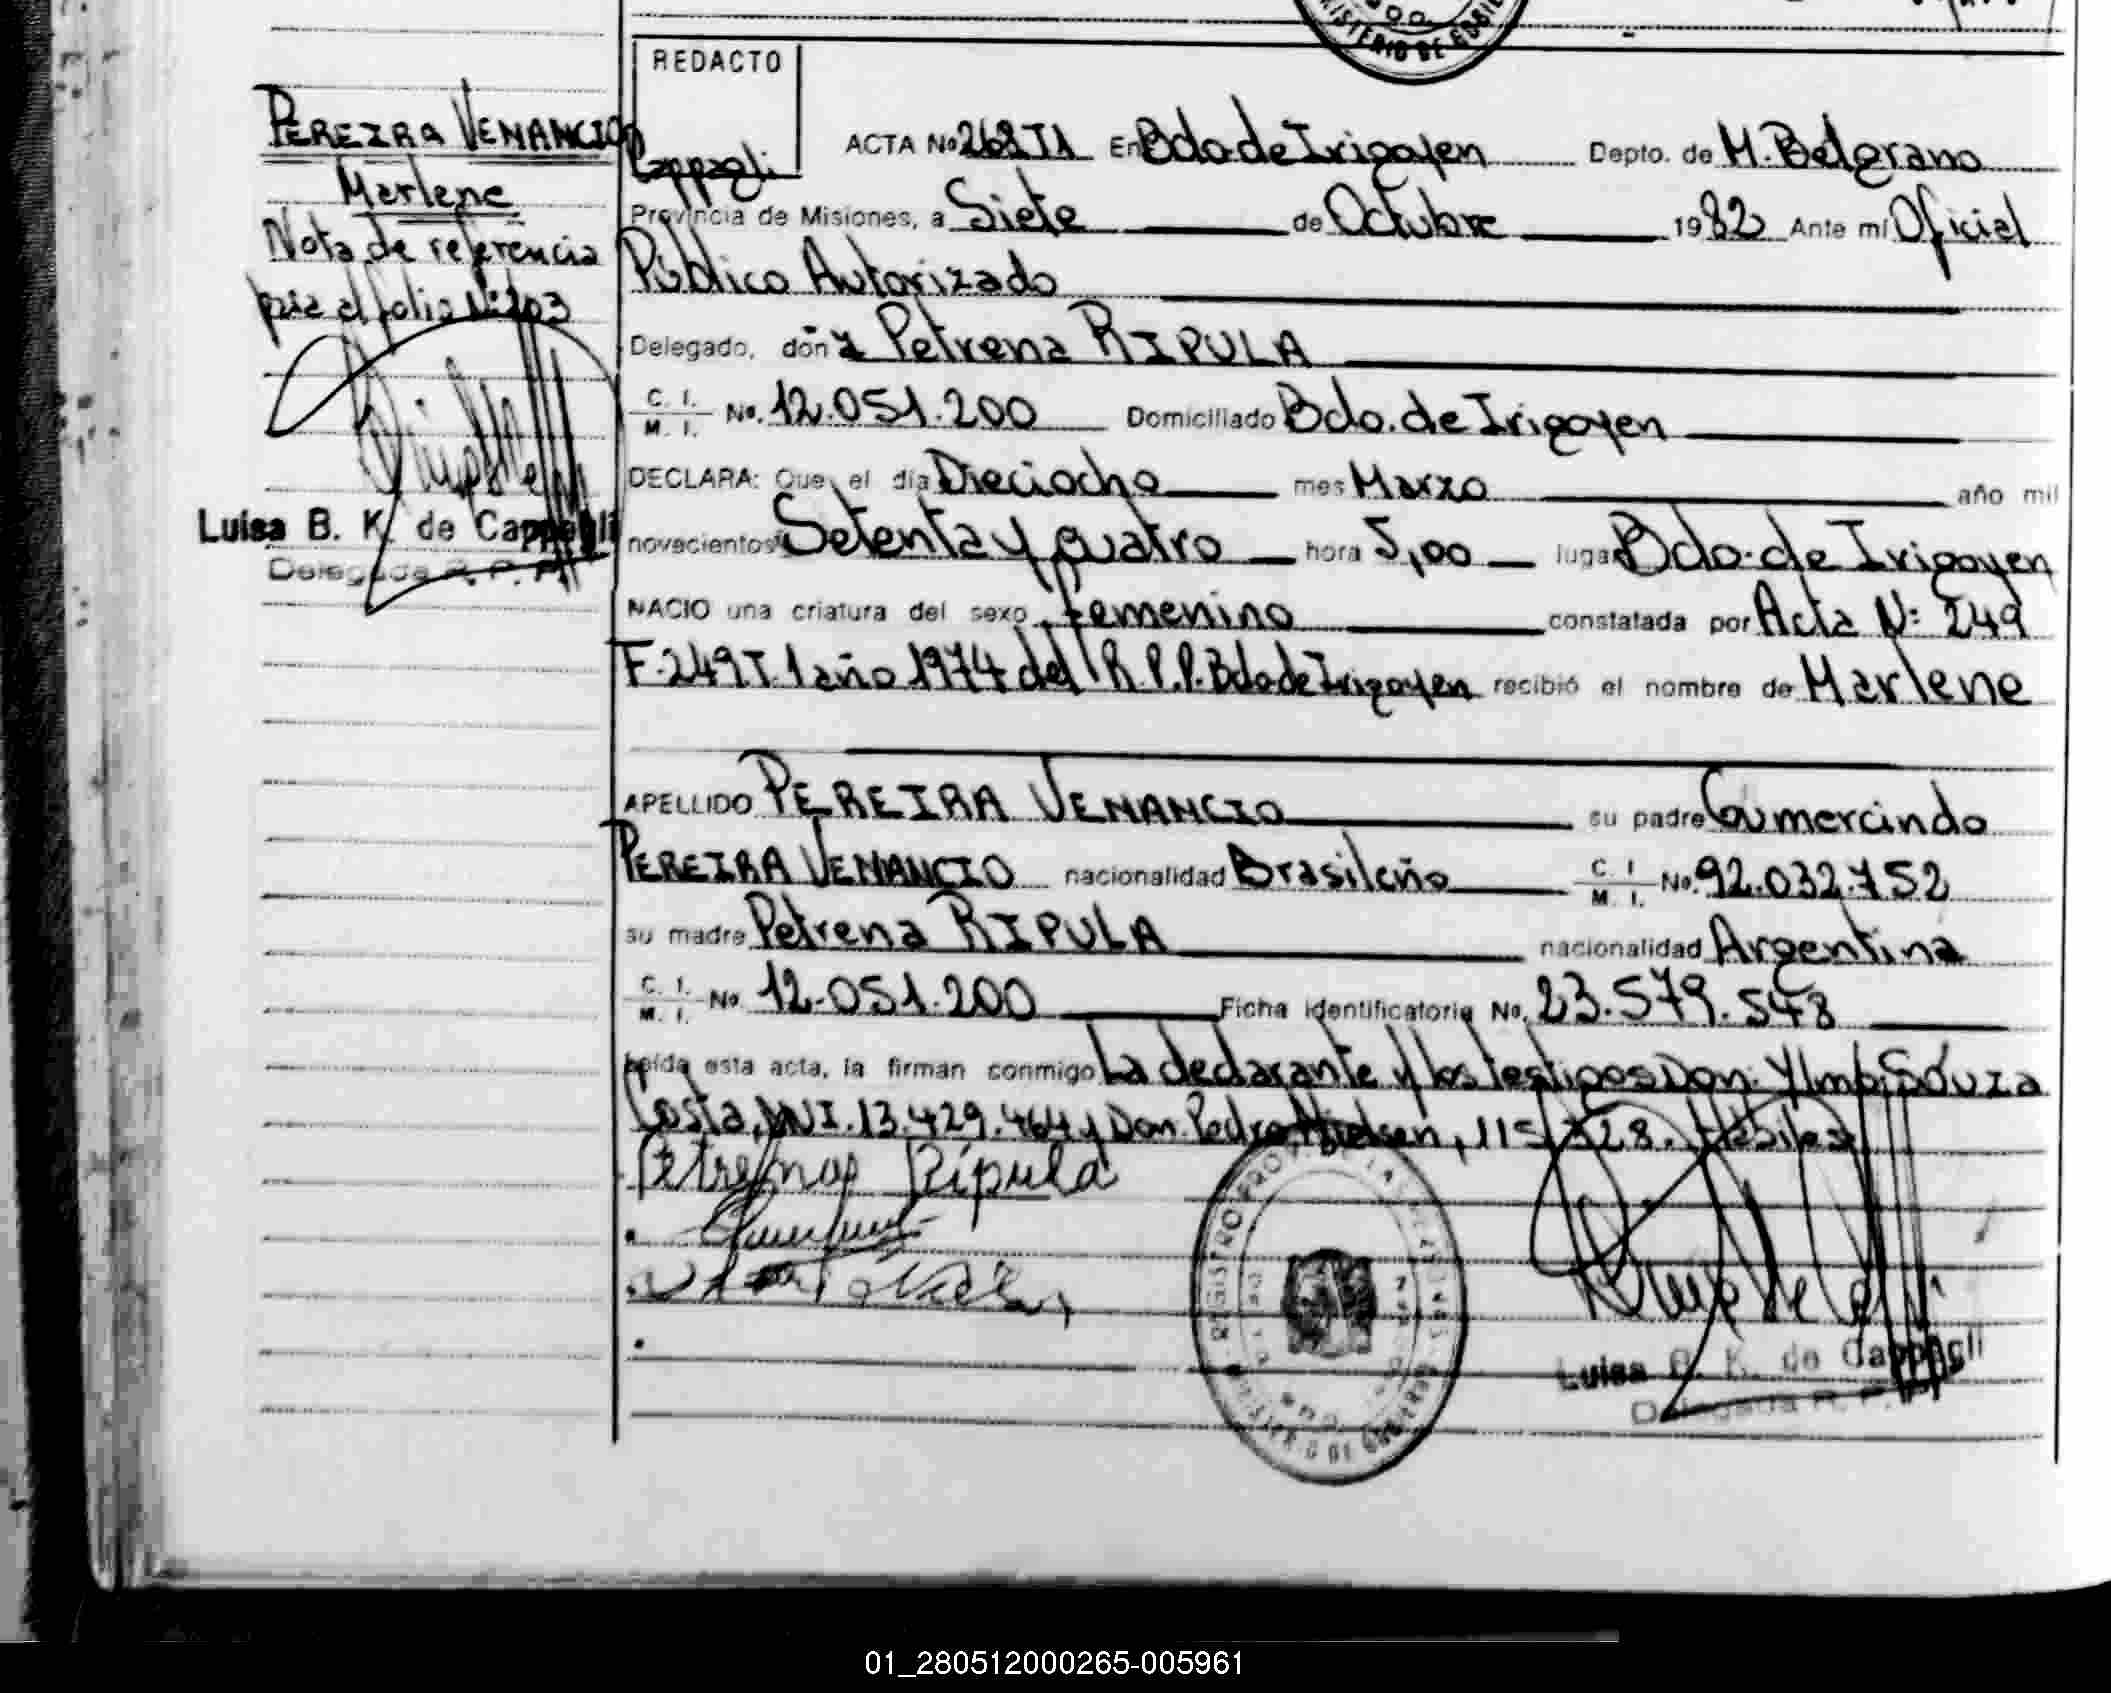 MINISTERIO DE GOBIE
REDACTO
Cappagli
PEREIRA VENANCIO
Marlene
Nota de referencia
para el folio Nº 203
Luisa B. K. de Cappagli
Delegada R. P. P.
ACTA No 268 T1 En Bdo de Irigoyen Depto. de M. Belgrano
Provincia de Misiones, a Siete de Octubre 1982 Ante mí Oficial
Público Autorizado
Delegado, don a Petrena RIPULA
C. I. M. I. No. 12.051.200 Domiciliado Bdo. de Irigoyen
DECLARA: Que, el día Dieciocho mes Marzo año mil
novecientos Setenta y quatro hora 5,00 lugar Bdo. de Irigoyen
NACIO una criatura del sexo femenino constatada por Acta N: 249
F. 249 T. 1 año 1974 del R.P.P. Bdo de Irigoyen recibió el nombre de Marlene
APELLIDO PEREIRA VENANCIO su padre Gumercindo
PEREIRA VENANCIO nacionalidad Brasileño C. I. M. I. No. 92.032.752
su madre Petrena RIPULA nacionalidad Argentina
C. I. M. I. No. 12.051.200 Ficha identificatoria No. 23.579.548
Leída esta acta, la firman conmigo La declarante y los testigos Don. Souza
Costa, DNI. 13.429.464 y Don. Pedro Nielsen, Habiles
Petrena Ripula
REGISTRO PROV. DE LAS PERSONAS
MINISTERIO DE GOBIERNO
Luisa B. K. de Cappagli
Delegada R. P.
01_280512000265-005961